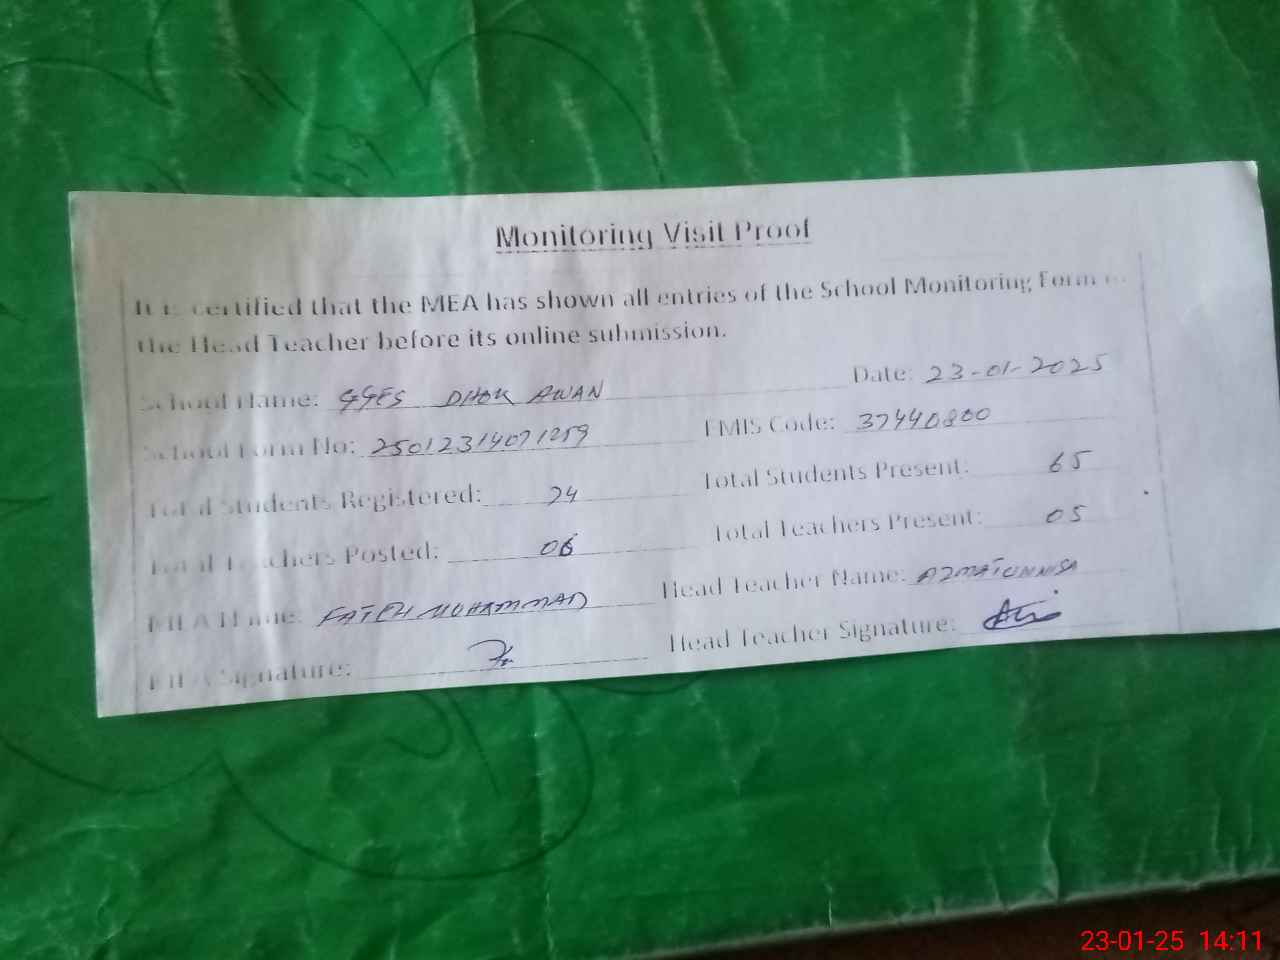 Monitoring Visit Proof
It is certified that the MEA has shown all entries of the School Monitoring Form to
the Head Teacher before its online submission.
School Name: GGES DHOK AWAN Date: 23-01-2025
School Form No: 25012314071259 EMIS Code: 37440800
Total Students Registered: 74 Total Students Present: 65
Total Teachers Posted: 06 Total Teachers Present: 05
MEA Name: FATEH MUHAMMAD Head Teacher Name: AZMATUNNISA
MEA Signature: Head Teacher Signature:
23-01-25 14:11